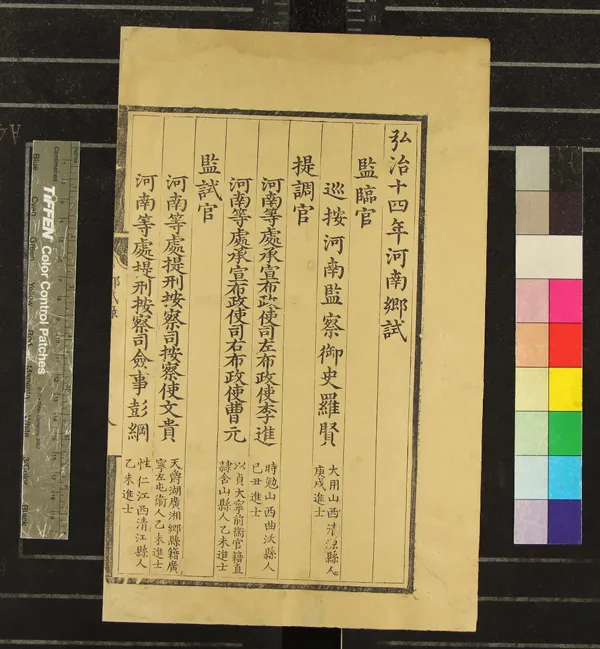 弘治十四年河南鄉試
監臨官
巡按河南監察御史羅賢
大用山西清源縣人
庚戌進士
提調官
河南等處承宣布政使司左布政使李進
時勉山西曲沃縣人
己丑進士
河南等處承宣布政使司右布政使曹元
以貞大寧前衛官籍直
隸含山縣人乙未進士
監試官
河南等處提刑按察司按察使文貴
天爵湖廣湘鄉縣籍廣
寧左屯衛人乙未進士
河南等處提刑按察司僉事彭綱
性仁江西清江縣人
乙未進士
TIFFEN Color Control Patches
Blue
Cyan
Green
Yellow
Red
Magenta
White
3/Color
Black